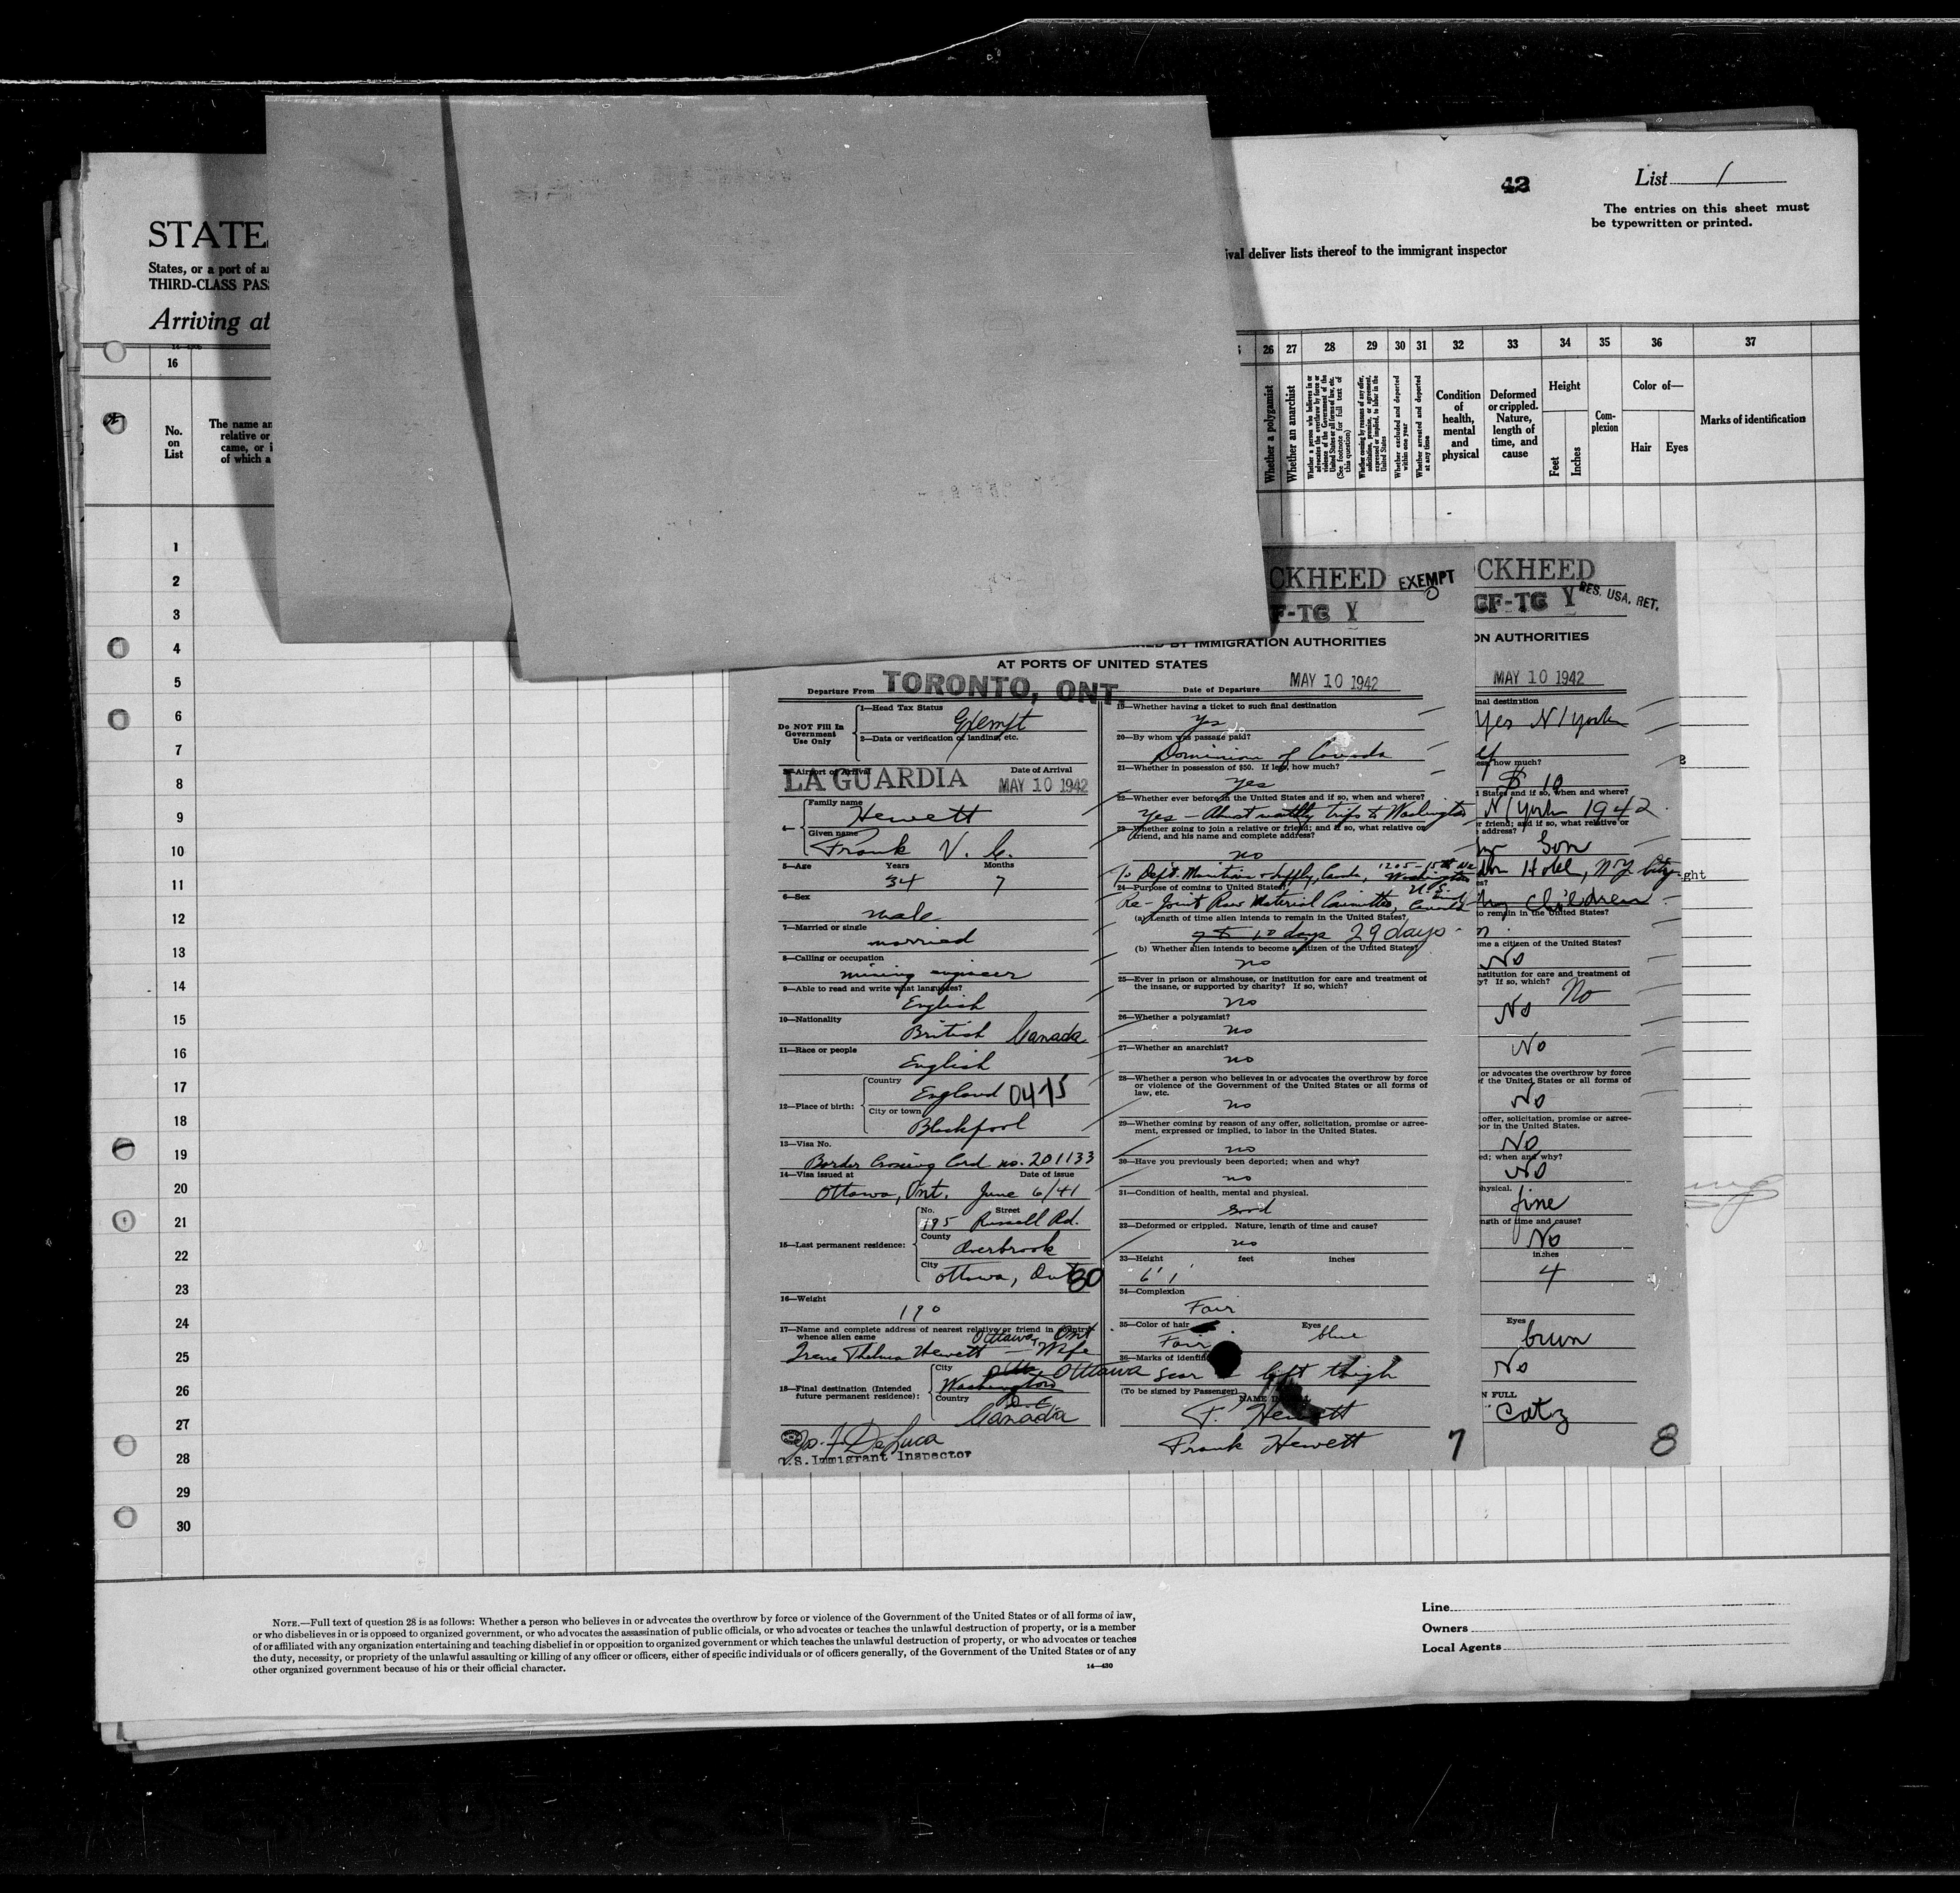 42
List 1
The entries on this sheet must
be typewritten or printed.
STATE
States, or a port of a
THIRD-CLASS PAS
ival deliver lists thereof to the immigrant inspector
Arriving at
16
26 27 28 29 30 31 32 33 34 35 36 37
No.
on
List
The name an
relative or
came, or i
of which a
Whether a polygamist
Whether an anarchist
Whether a person who believes in or
advocates the overthrow by force or
violence of the Government of the
United States or all forms of law, etc.
(See footnote for full text of
this question)
Whether coming by reason of any offer,
solicitation, promise, or agreement,
expressed or implied, to labor in the
United States
Whether excluded and deported
within one year
Whether arrested and deported
at any time
Condition
of
health,
mental
and
physical
Deformed
or crippled.
Nature,
length of
time, and
cause
Height
Feet
Inches
Com-
plexion
Color of—
Hair
Eyes
Marks of identification
1
2
3
4
5
6
7
8
9
10
11
12
13
14
15
16
17
18
19
20
21
22
23
24
25
26
27
28
29
30
CKHEED EXEMPT
F-TG Y
BY IMMIGRATION AUTHORITIES
AT PORTS OF UNITED STATES
Departure From TORONTO, ONT. Date of Departure MAY 10 1942
Do NOT Fill In
Government
Use Only
1—Head Tax Status
Exempt
2—Data or verification of landing, etc.
3—Airport of Arrival Date of Arrival
LA GUARDIA MAY 10 1942
4—
Family name
Hewett
Given name
Frank V. C.
5—Age Years Months
34 7
6—Sex
male
7—Married or single
married
8—Calling or occupation
mining engineer
9—Able to read and write what languages?
English
10—Nationality
British Canada
11—Race or people
English
12—Place of birth:
Country
England 0475
City or town
Blackpool
13—Visa No.
Border Crossing Card no. 201133
14—Visa issued at Date of issue
Ottawa, Ont. June 6/41
15—Last permanent residence:
No. Street
195 Russell Rd.
County
Overbrook
City
Ottawa, Ont 80
16—Weight
190
17—Name and complete address of nearest relative or friend in country
whence alien came
Ottawa, Ont
Irene Thelma Hewett — Wife
18—Final destination (Intended
future permanent residence):
City
Ottawa
Washington
Country
D.C.
Canada
Jo. F. DeLuca
U.S. Immigrant Inspector
19—Whether having a ticket to such final destination
Yes
20—By whom was passage paid?
Dominion of Canada
21—Whether in possession of $50. If less, how much?
Yes
22—Whether ever before in the United States and if so, when and where?
Yes – Almost monthly trips to Washington
23—Whether going to join a relative or friend; and if so, what relative or
friend, and his name and complete address?
no
To Dept. Munitions & Supply, Canada, 1205 - 15th St. Washington
24—Purpose of coming to United States?
Re – Joint Raw Material Committee, U.S. and Canada
(a) Length of time alien intends to remain in the United States?
7 to 10 days 29 days
(b) Whether alien intends to become a citizen of the United States?
no
25—Ever in prison or almshouse, or institution for care and treatment of
the insane, or supported by charity? If so, which?
no
26—Whether a polygamist?
no
27—Whether an anarchist?
no
28—Whether a person who believes in or advocates the overthrow by force
or violence of the Government of the United States or all forms of
law, etc.
no
29—Whether coming by reason of any offer, solicitation, promise or agree-
ment, expressed or implied, to labor in the United States.
no
30—Have you previously been deported; when and why?
no
31—Condition of health, mental and physical.
Good
32—Deformed or crippled. Nature, length of time and cause?
no
33—Height feet inches
6' 1
34—Complexion
Fair
35—Color of hair Eyes
Fair blue
36—Marks of identifi
scar left thigh
(To be signed by Passenger)
NAME IN
F. Hewett
Frank Hewett
7
CKHEED
RES. USA. RET.
GF-TG Y
ON AUTHORITIES
MAY 10 1942
inal destination
Yes N/York
ess, how much?
$ 10
d States and if so, when and where?
N/York 1942
r friend; and if so, what relative or
address?
Son
Hotel, N.Y. City
es?
my children
to remain in the United States?
me a citizen of the United States?
No
nstitution for care and treatment of
y? If so, which?
No
No
No
or advocates the overthrow by force
f the United States or all forms of
No
offer, solicitation, promise or agree-
bor in the United States.
No
ed; when and why?
No
physical.
fine
ngth of time and cause?
No
inches
4
Eyes
brwn
No
N FULL
Catz
8
ght
NOTE.—Full text of question 28 is as follows: Whether a person who believes in or advocates the overthrow by force or violence of the Government of the United States or of all forms of law,
or who disbelieves in or is opposed to organized government, or who advocates the assassination of public officials, or who advocates or teaches the unlawful destruction of property, or is a member
of or affiliated with any organization entertaining and teaching disbelief in or opposition to organized government or which teaches the unlawful destruction of property, or who advocates or teaches
the duty, necessity, or propriety of the unlawful assaulting or killing of any officer or officers, either of specific individuals or of officers generally, of the Government of the United States or of any
other organized government because of his or their official character.
14—430
Line
Owners
Local Agents